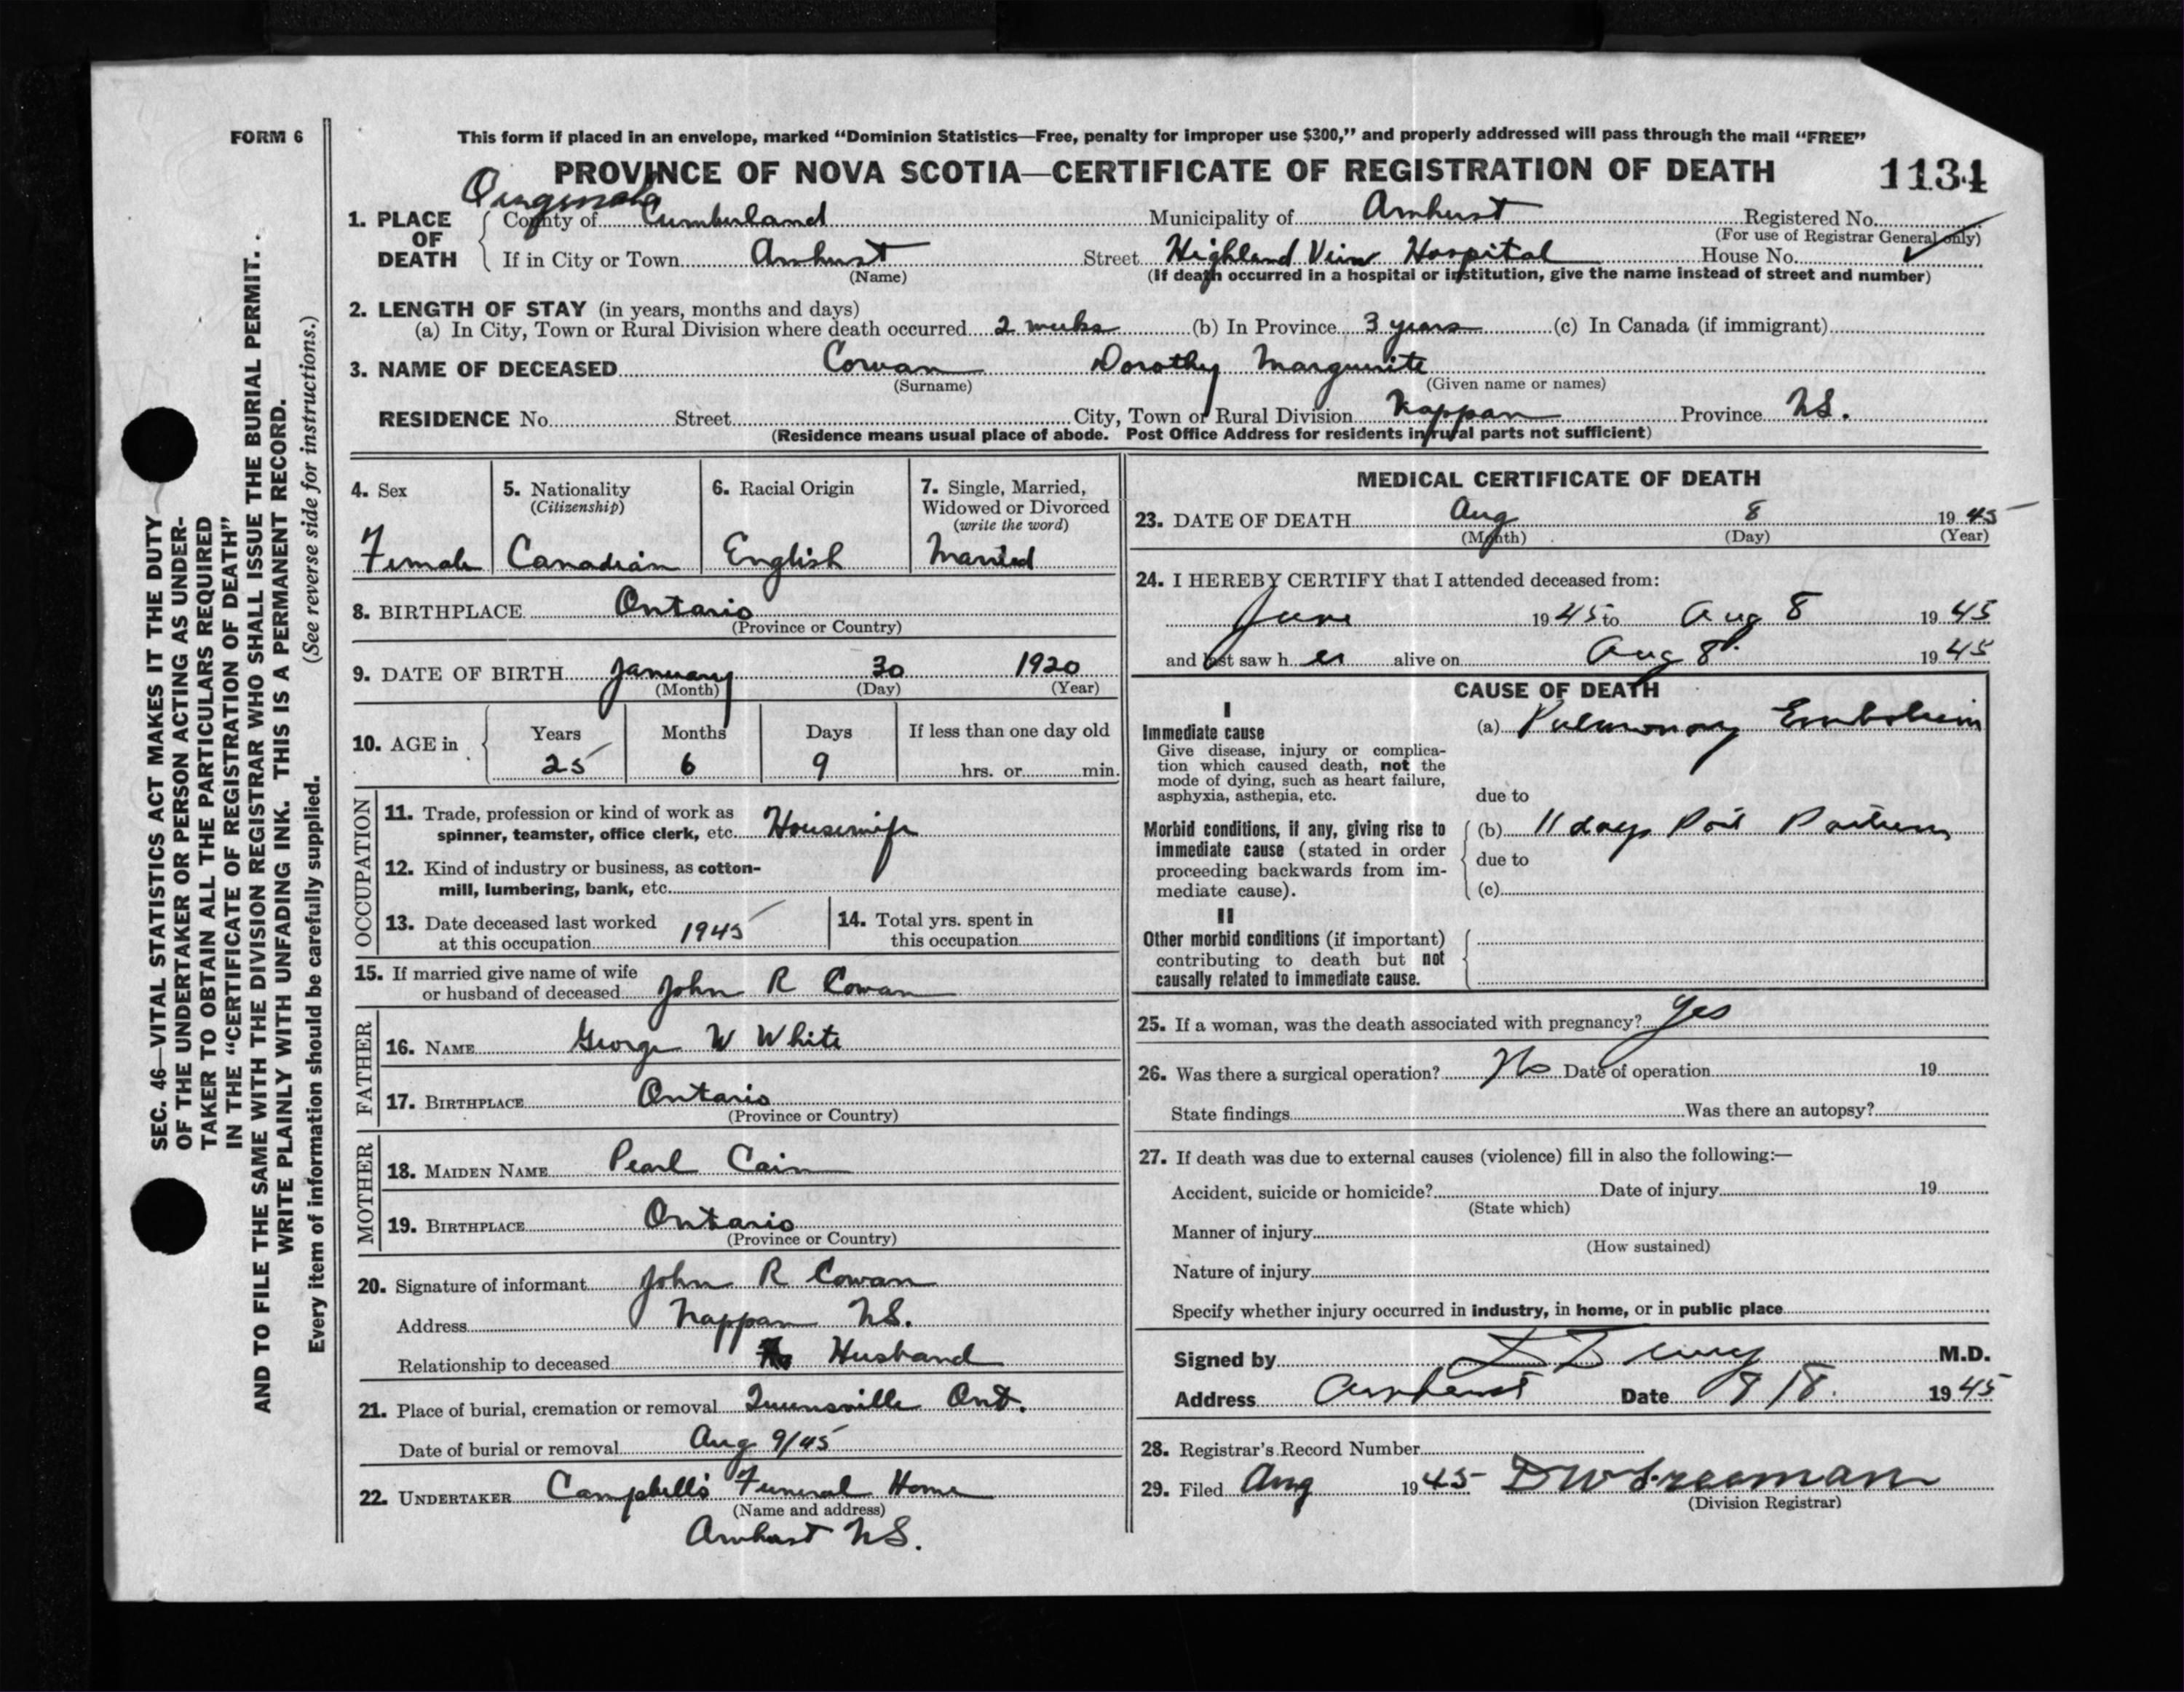 FORM 6
This form if placed in an envelope, marked “Dominion Statistics—Free, penalty for improper use $300,” and properly addressed will pass through the mail “FREE”
PROVINCE OF NOVA SCOTIA—CERTIFICATE OF REGISTRATION OF DEATH 1134
1. PLACE OF DEATH
County of Cumberland Municipality of Amherst Registered No.
(For use of Registrar General only)
If in City or Town Amherst Street Highland View Hospital House No.
(Name) (If death occurred in a hospital or institution, give the name instead of street and number)
2. LENGTH OF STAY (in years, months and days)
(a) In City, Town or Rural Division where death occurred 2 weeks (b) In Province 3 years (c) In Canada (if immigrant)
3. NAME OF DECEASED Cowan Dorothy Marguerite
(Surname) (Given name or names)
RESIDENCE No. Street City, Town or Rural Division Nappan Province N.S.
(Residence means usual place of abode. Post Office Address for residents in rural parts not sufficient)
4. Sex 5. Nationality 6. Racial Origin 7. Single, Married,
(Citizenship) Widowed or Divorced
(write the word)
Female Canadian English Married
8. BIRTHPLACE Ontario
(Province or Country)
9. DATE OF BIRTH January 30 1920
(Month) (Day) (Year)
10. AGE in Years Months Days If less than one day old
25 6 9 hrs. or min.
OCCUPATION
11. Trade, profession or kind of work as
spinner, teamster, office clerk, etc. Housewife
12. Kind of industry or business, as cotton-
mill, lumbering, bank, etc.
13. Date deceased last worked
at this occupation 1945
14. Total yrs. spent in
this occupation
15. If married give name of wife
or husband of deceased John R Cowan
FATHER
16. NAME George W White
17. BIRTHPLACE Ontario
(Province or Country)
MOTHER
18. MAIDEN NAME Pearl Cain
19. BIRTHPLACE Ontario
(Province or Country)
20. Signature of informant John R Cowan
Address Nappan N.S.
Relationship to deceased Husband
21. Place of burial, cremation or removal Queensville Ont.
Date of burial or removal Aug 9/45
22. UNDERTAKER Campbell's Funeral Home
(Name and address)
Amherst N.S.
MEDICAL CERTIFICATE OF DEATH
23. DATE OF DEATH Aug 8 1945
(Month) (Day) (Year)
24. I HEREBY CERTIFY that I attended deceased from:
June 1945 to Aug 8 1945
and last saw her alive on Aug 8 1945
CAUSE OF DEATH
I
Immediate cause (a) Pulmonary Embolism
Give disease, injury or complica-
tion which caused death, not the
mode of dying, such as heart failure,
asphyxia, asthenia, etc. due to
Morbid conditions, if any, giving rise to (b) 11 days Post Partum
immediate cause (stated in order due to
proceeding backwards from im-
mediate cause). (c)
II
Other morbid conditions (if important)
contributing to death but not
causally related to immediate cause.
25. If a woman, was the death associated with pregnancy? Yes
26. Was there a surgical operation? No Date of operation 19
State findings Was there an autopsy?
27. If death was due to external causes (violence) fill in also the following:—
Accident, suicide or homicide? Date of injury 19
(State which)
Manner of injury
(How sustained)
Nature of injury
Specify whether injury occurred in industry, in home, or in public place
Signed by M.D.
Address Amherst Date 8/8. 1945
28. Registrar's Record Number
29. Filed Aug 1945 DW Freeman
(Division Registrar)
SEC. 46—VITAL STATISTICS ACT MAKES IT THE DUTY
OF THE UNDERTAKER OR PERSON ACTING AS UNDER-
TAKER TO OBTAIN ALL THE PARTICULARS REQUIRED
IN THE “CERTIFICATE OF REGISTRATION OF DEATH”
AND TO FILE THE SAME WITH THE DIVISION REGISTRAR WHO SHALL ISSUE THE BURIAL PERMIT.
WRITE PLAINLY WITH UNFADING INK. THIS IS A PERMANENT RECORD.
Every item of information should be carefully supplied. (See reverse side for instructions.)